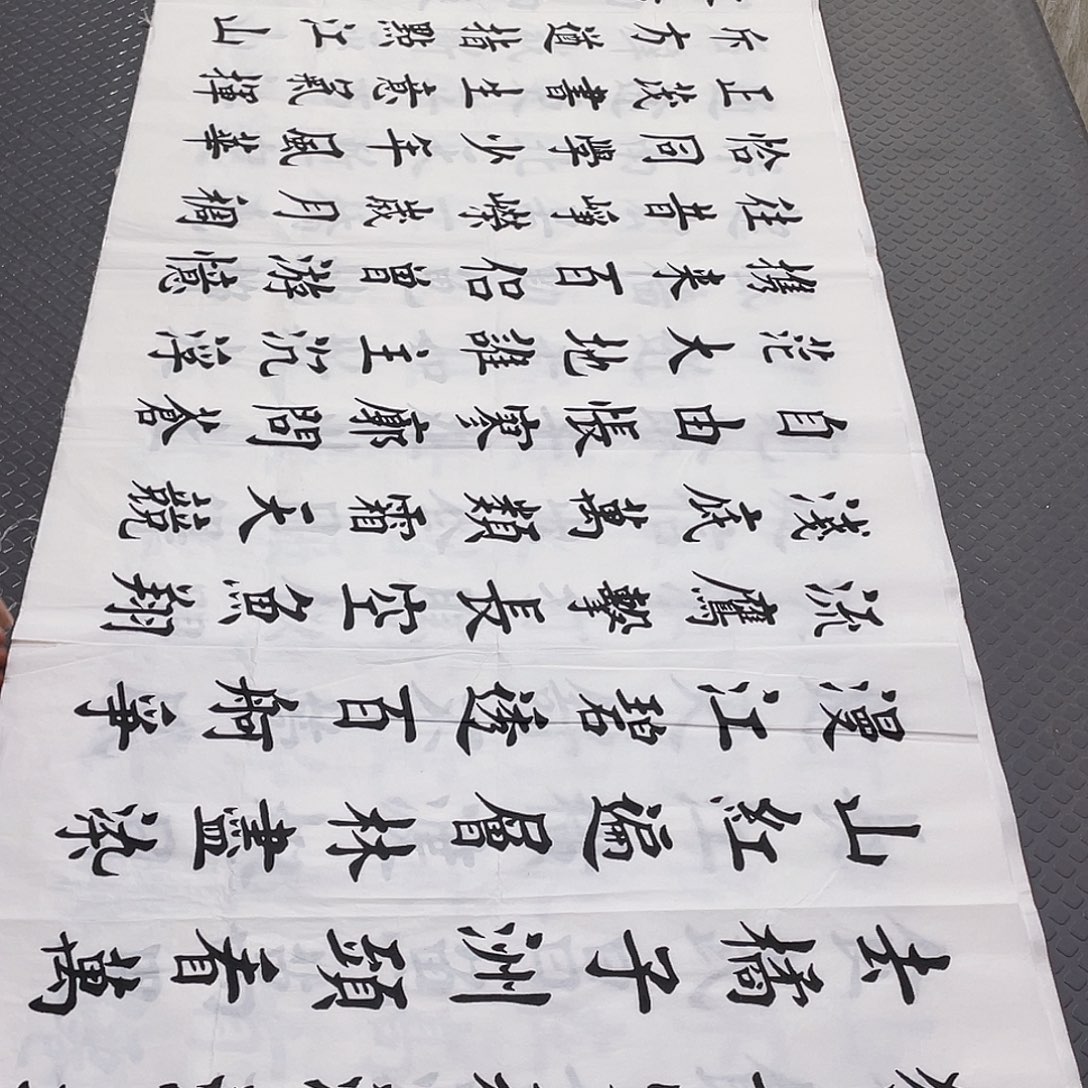 去橘子洲頭看萬
山紅遍層林盡染
漫江碧透百舸爭
流鷹擊長空魚翔
淺底萬類霜天競
自由悵寥廓問蒼
茫大地誰主沉浮
攜來百侣曾游憶
往昔崢嶸歲月稠
恰同學少年風華
正茂書生意氣揮
斥方遒指點江山